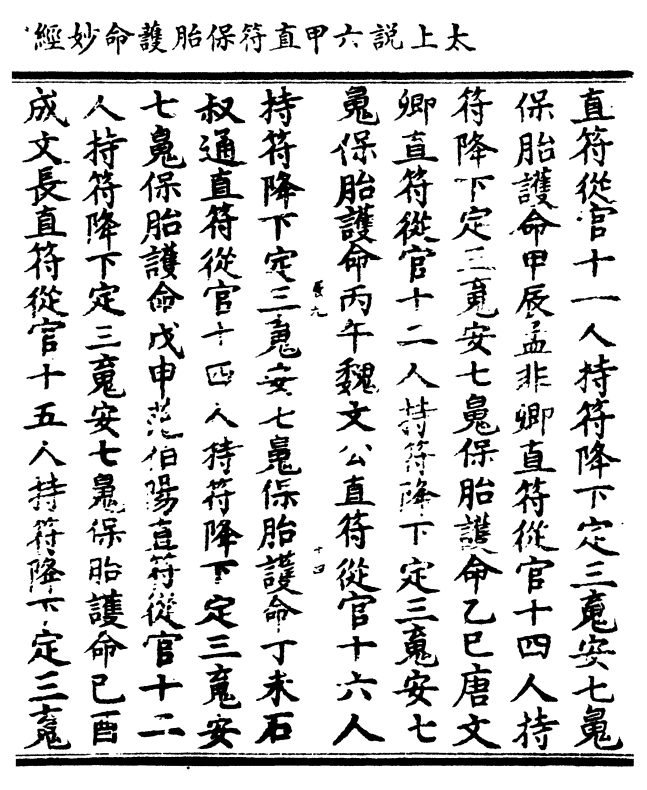 太上説六甲直符保胎護命妙經
直符從官十一人持符降下定三䰟安七魄
保胎護命甲辰孟非卿直符從官十四人持
符降下定三䰟安七魄保胎護命乙巳唐文
卿直符從官十二人持符降下定三䰟安七
魄保胎護命丙午魏文公直符從官十六人
十四
持符降下定三䰟安七魄保胎護命丁未石
叔通直符從官十四人持符降下定三䰟安
七魄保胎護命戊申范伯陽直符從官十二
人持符降下定三䰟安七魄保胎護命己酉
成文長直符從官十五人持符降下定三䰟